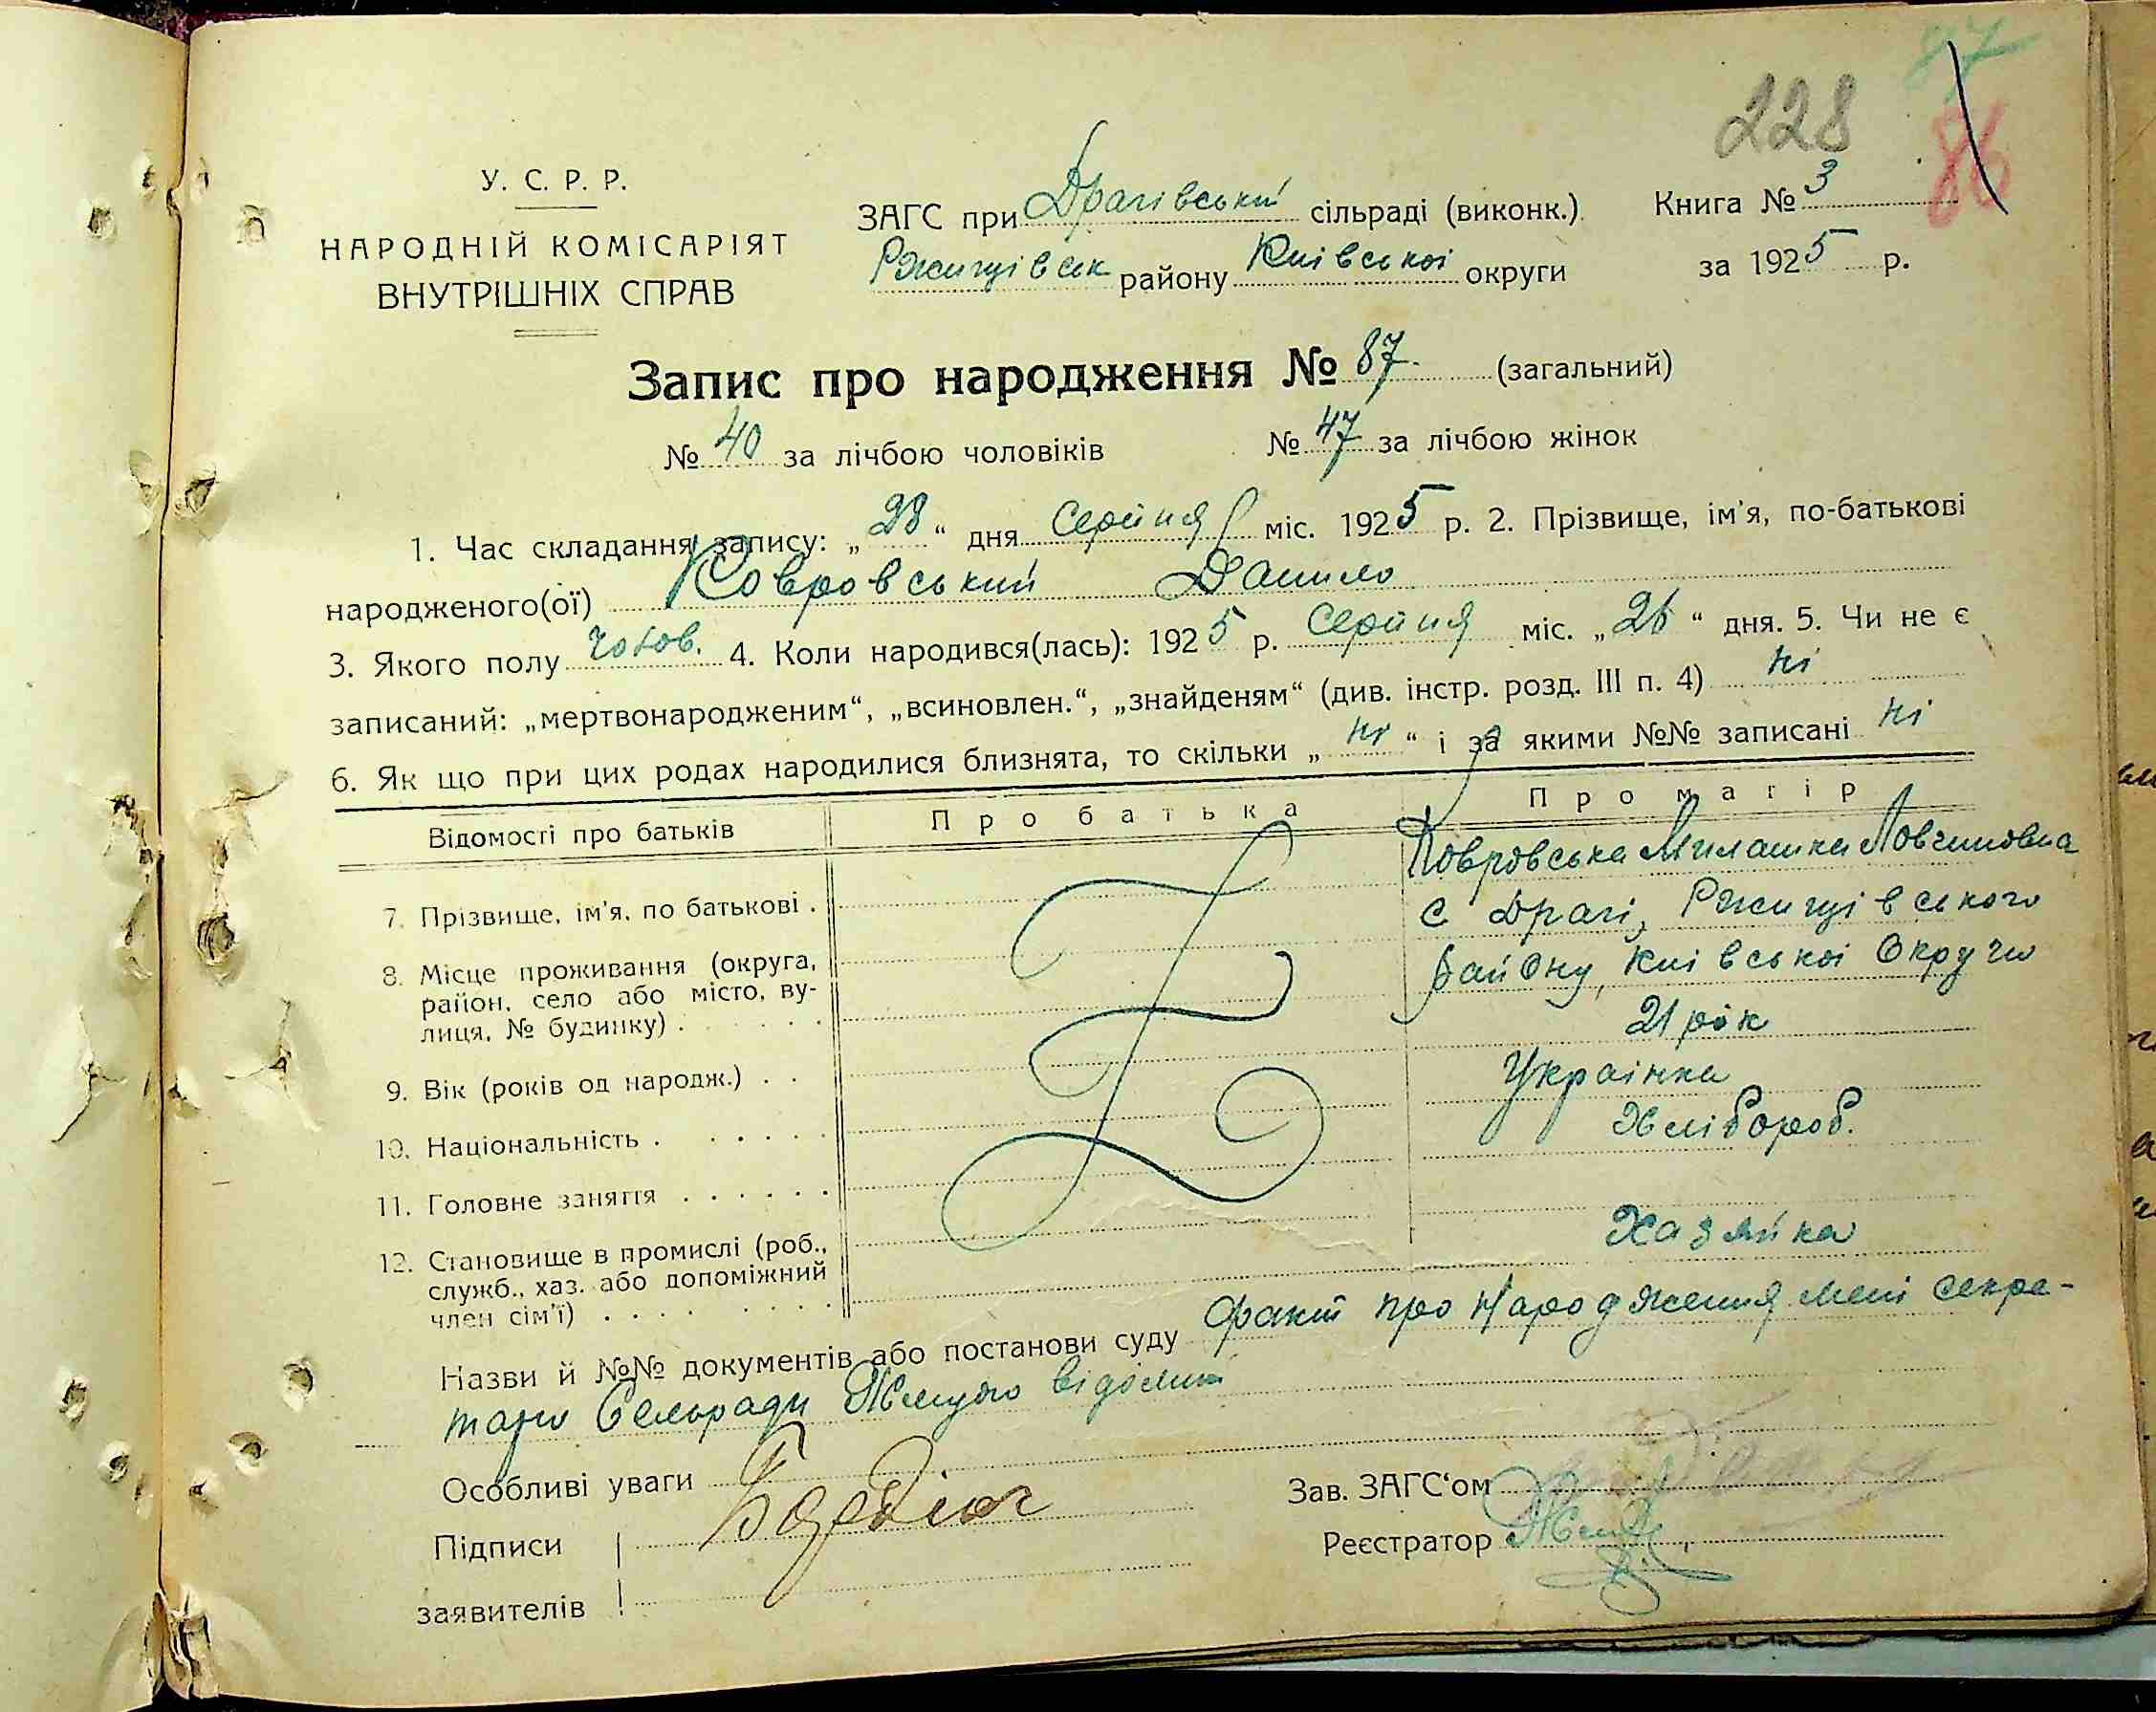 87
228
86
У. С. Р. Р.
НАРОДНІЙ КОМІСАРІЯТ
ВНУТРІШНІХ СПРАВ
ЗАГС при Драгівській сільраді (виконк.) Книга № 3
Ржищівськ району Київської округи за 1925 р.
Запис про народження № 87 (загальний)
№ 40 за лічбою чоловіків № 47 за лічбою жінок
1. Час складання запису: „28“ дня Серпня міс. 1925 р. 2. Прізвище, ім'я, по-батькові
народженого(ої) Ковровський Данило
3. Якого полу Чолов. 4. Коли народився(лась): 1925 р. Серпня міс. „26“ дня. 5. Чи не є
записаний: „мертвонародженим“, „всиновлен.“, „знайденям“ (див. інстр. розд. III п. 4) ні
6. Як що при цих родах народилися близнята, то скільки „ні“ і за якими №№ записані ні
Відомості про батьків Про батька Про матір
7. Прізвище, ім'я, по батькові . Ковровська
8. Місце проживання (округа, с Драчі, Ржищівського
район, село або місто, ву- району, Київської Округи
лиця, № будинку) .
9. Вік (років од народж.) . . 21 рік
10. Національність . Українка
11. Головне заняття Хлібороб.
12. Становище в промислі (роб., Хазяйка
служб., хаз. або допоміжний
член сім'ї)
Назви й №№ документів або постанови суду Факт про Народження мені секре-
тарю Сельради відомий
Особливі уваги
Підписи
заявителів
Зав. ЗАГС‘ом
Реєстратор